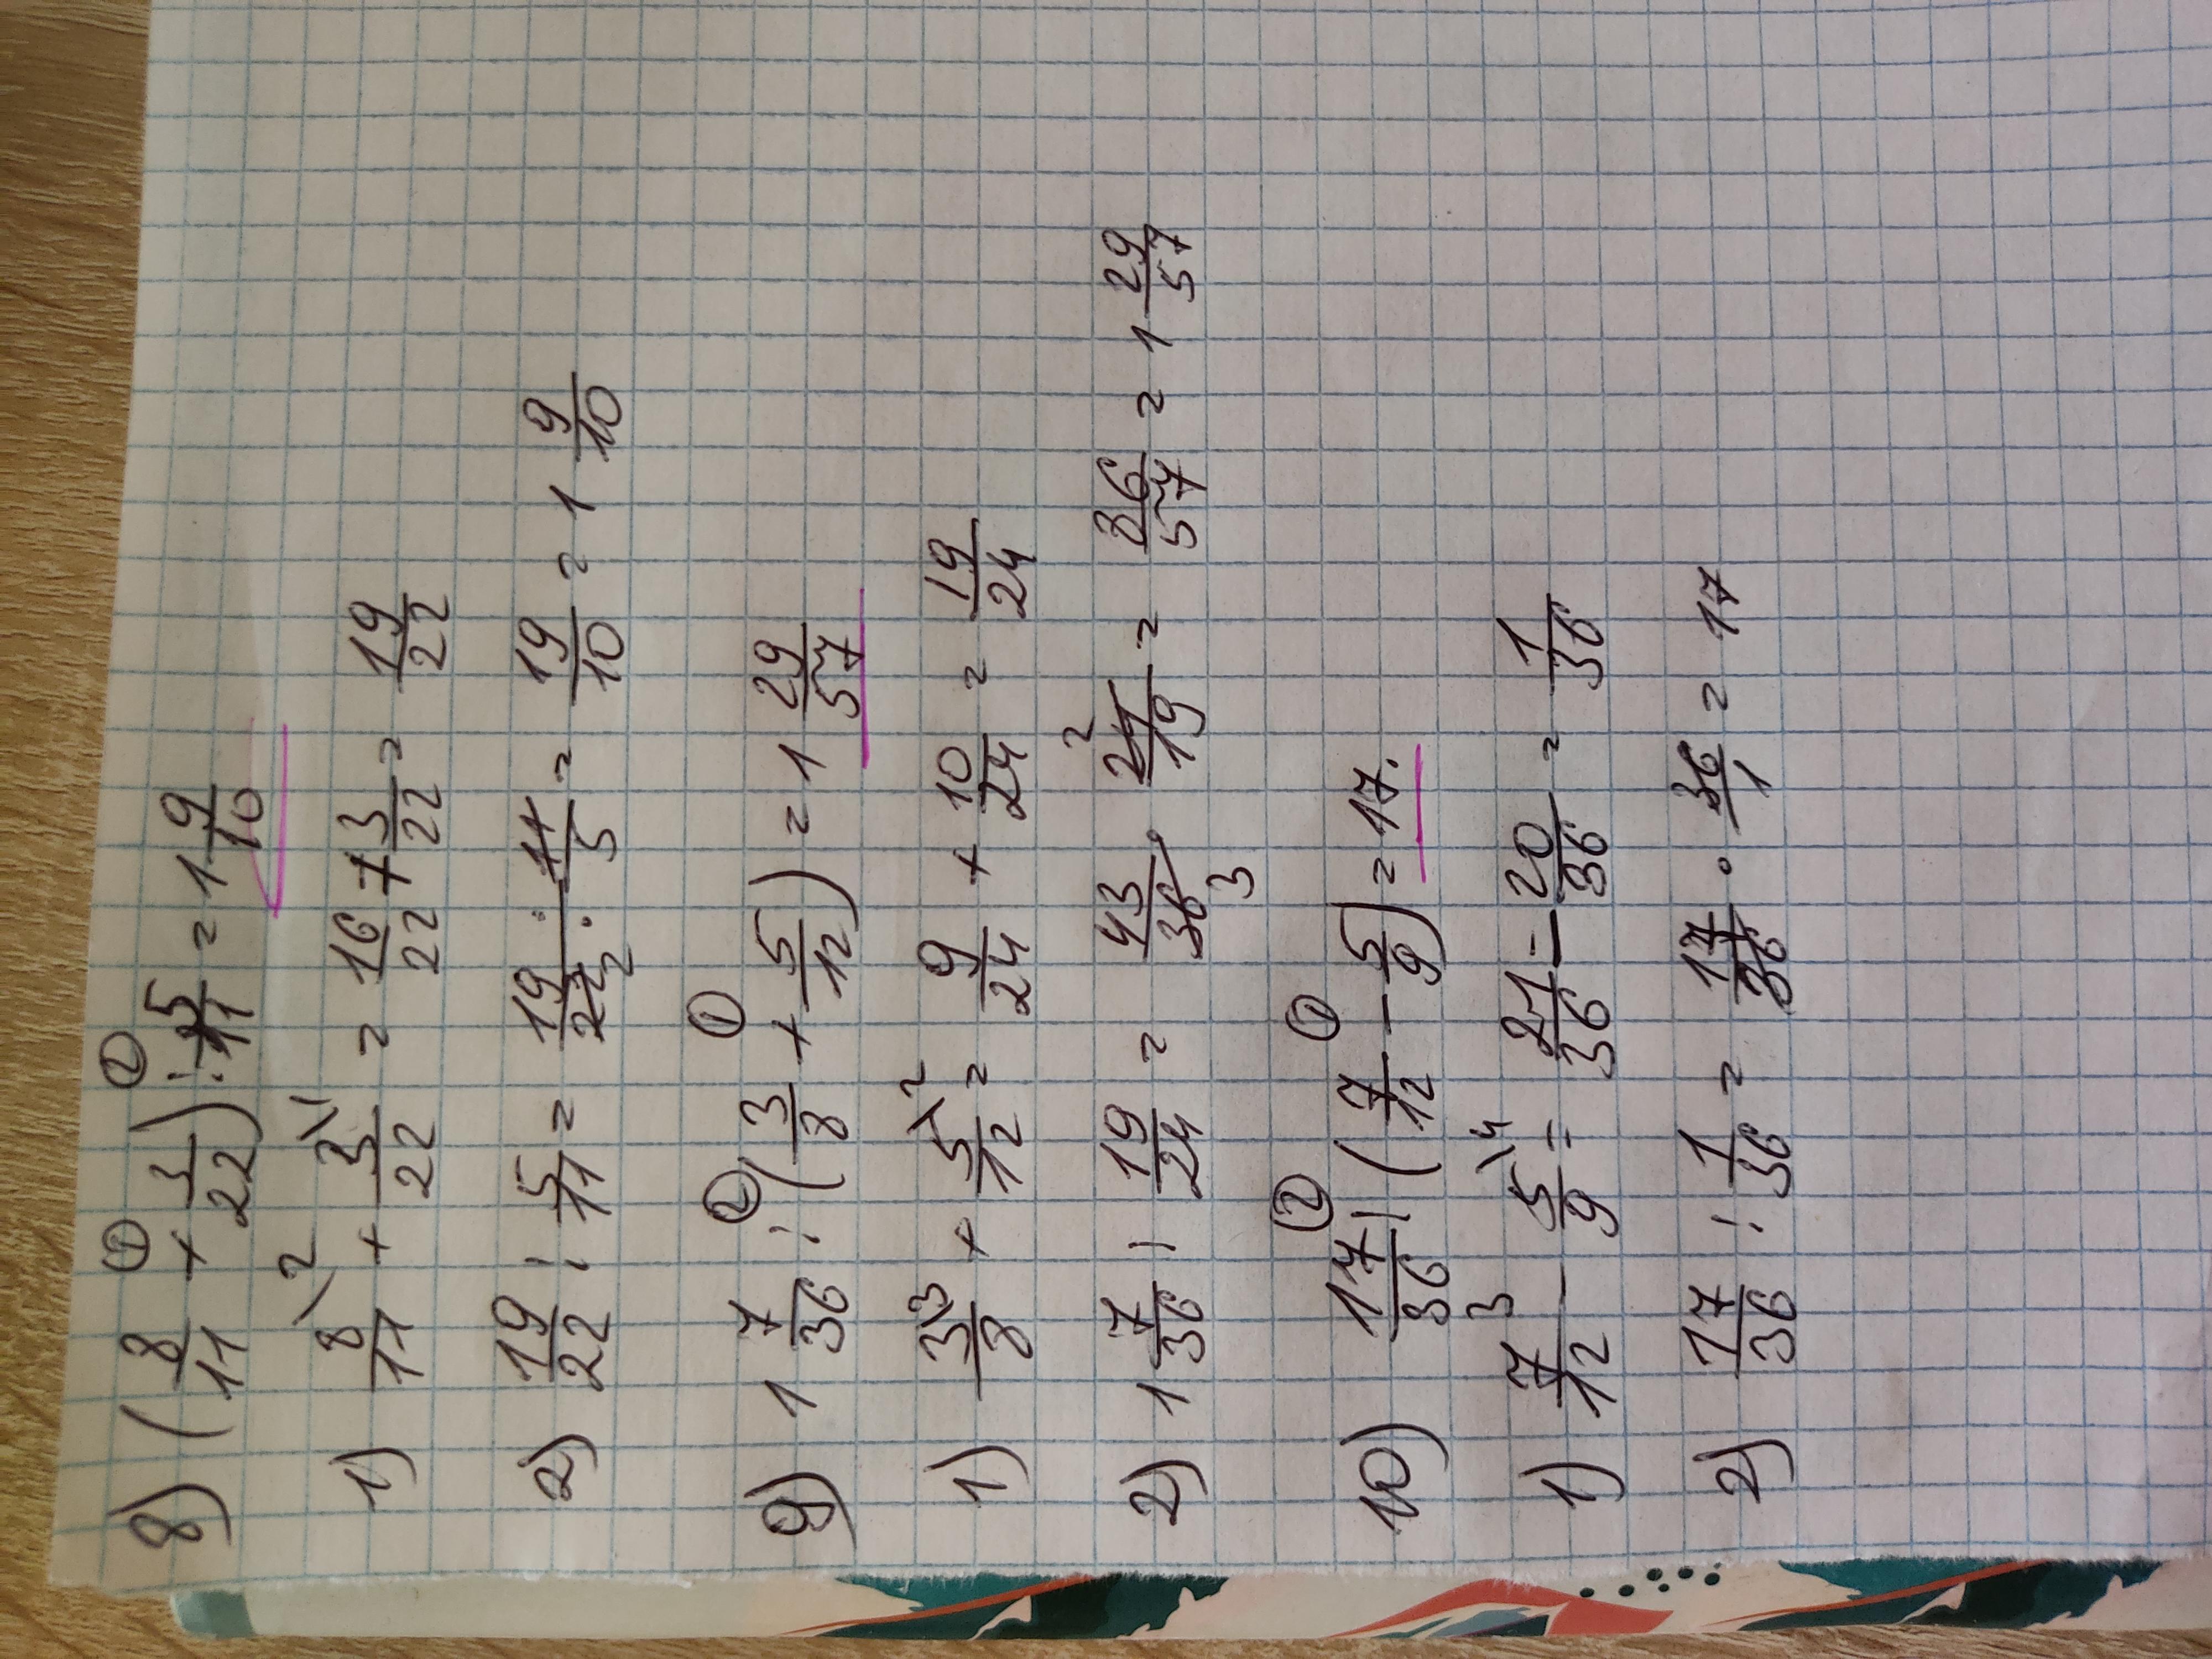 8) (8/11 + 3/22) : 5/11 = 1 9/10
1) 8/11 \2 + 3/22 \1 = 16/22 + 3/22 = 19/22
2) 19/22 : 5/11 = 19/22 2 · 11/5 = 19/10 = 1 9/10
9) 1 7/36 : (3/8 + 5/12) = 1 29/57
1) 3/8 \3 + 5/12 \2 = 9/24 + 10/24 = 19/24
2) 1 7/36 : 19/24 = 43/36 3 · 24 2/19 = 86/57 = 1 29/57
10) 17/36 : (7/12 - 5/9) = 17.
1) 7/12 3 - 5/9 \4 = 21/36 - 20/36 = 1/36
2) 17/36 : 1/36 = 17/36 · 36/1 = 17